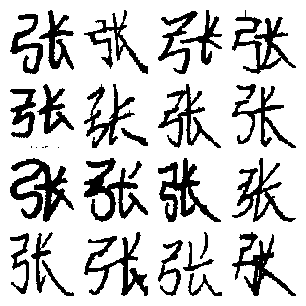 张张张张
张张张张
张张张张
张张张张